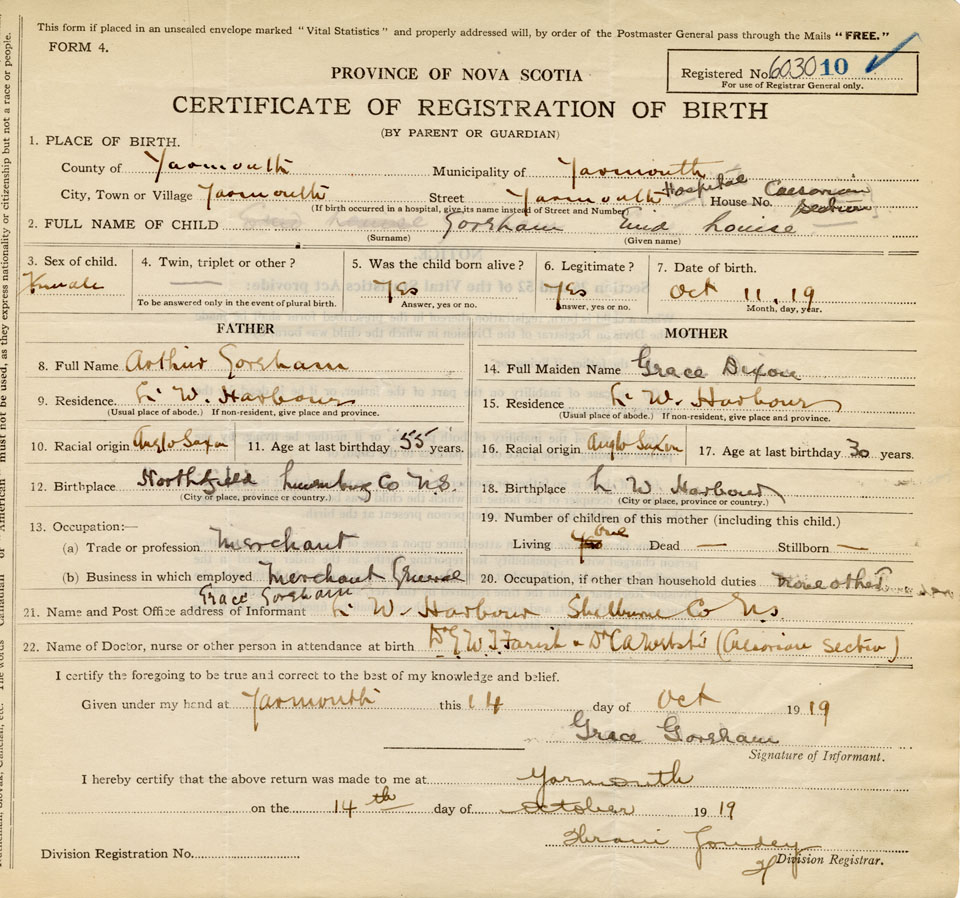 This form if placed in an unsealed envelope marked "Vital Statistics" and properly addressed will, by order of the Postmaster General pass through the Mails "FREE."
FORM 4.
Registered No. 6030 10
For use of Registrar General only.
PROVINCE OF NOVA SCOTIA
CERTIFICATE OF REGISTRATION OF BIRTH
(BY PARENT OR GUARDIAN)
1. PLACE OF BIRTH.
County of Yarmouth Municipality of Yarmouth
City, Town or Village Yarmouth Street Yarmouth Hospital House No. Caesarian Section
(If birth occurred in a hospital, give its name instead of Street and Number)
2. FULL NAME OF CHILD Goreham Enid Louise
(Surname) (Given name)
3. Sex of child. 4. Twin, triplet or other? 5. Was the child born alive? 6. Legitimate? 7. Date of birth.
Female — Yes Yes Oct 11, 19
To be answered only in the event of plural birth. Answer, yes or no. Answer, yes or no. Month, day, year.
FATHER MOTHER
8. Full Name Arthur Goreham 14. Full Maiden Name Grace Dixon
9. Residence L. W. Harbour 15. Residence L. W. Harbour
(Usual place of abode.) If non-resident, give place and province. (Usual place of abode.) If non-resident, give place and province.
10. Racial origin Anglo Saxon 11. Age at last birthday 55 years. 16. Racial origin Anglo Saxon 17. Age at last birthday 30 years.
12. Birthplace Northfield Lunenburg Co N.S. 18. Birthplace L W Harbour
(City or place, province or country.) (City or place, province or country.)
13. Occupation:— 19. Number of children of this mother (including this child.)
(a) Trade or profession Merchant Living one Dead — Stillborn —
(b) Business in which employed Merchant General 20. Occupation, if other than household duties none other
Grace Goreham
21. Name and Post Office address of Informant L. W. Harbour Shelburne Co N.S.
22. Name of Doctor, nurse or other person in attendance at birth Dr G. W. T. Farish + Dr C A Webster (Caesarian Section)
I certify the foregoing to be true and correct to the best of my knowledge and belief.
Given under my hand at Yarmouth this 14 day of Oct 1919
Grace Goreham
Signature of Informant.
I hereby certify that the above return was made to me at Yarmouth
on the 14th day of October 1919
Division Registration No.
Division Registrar.